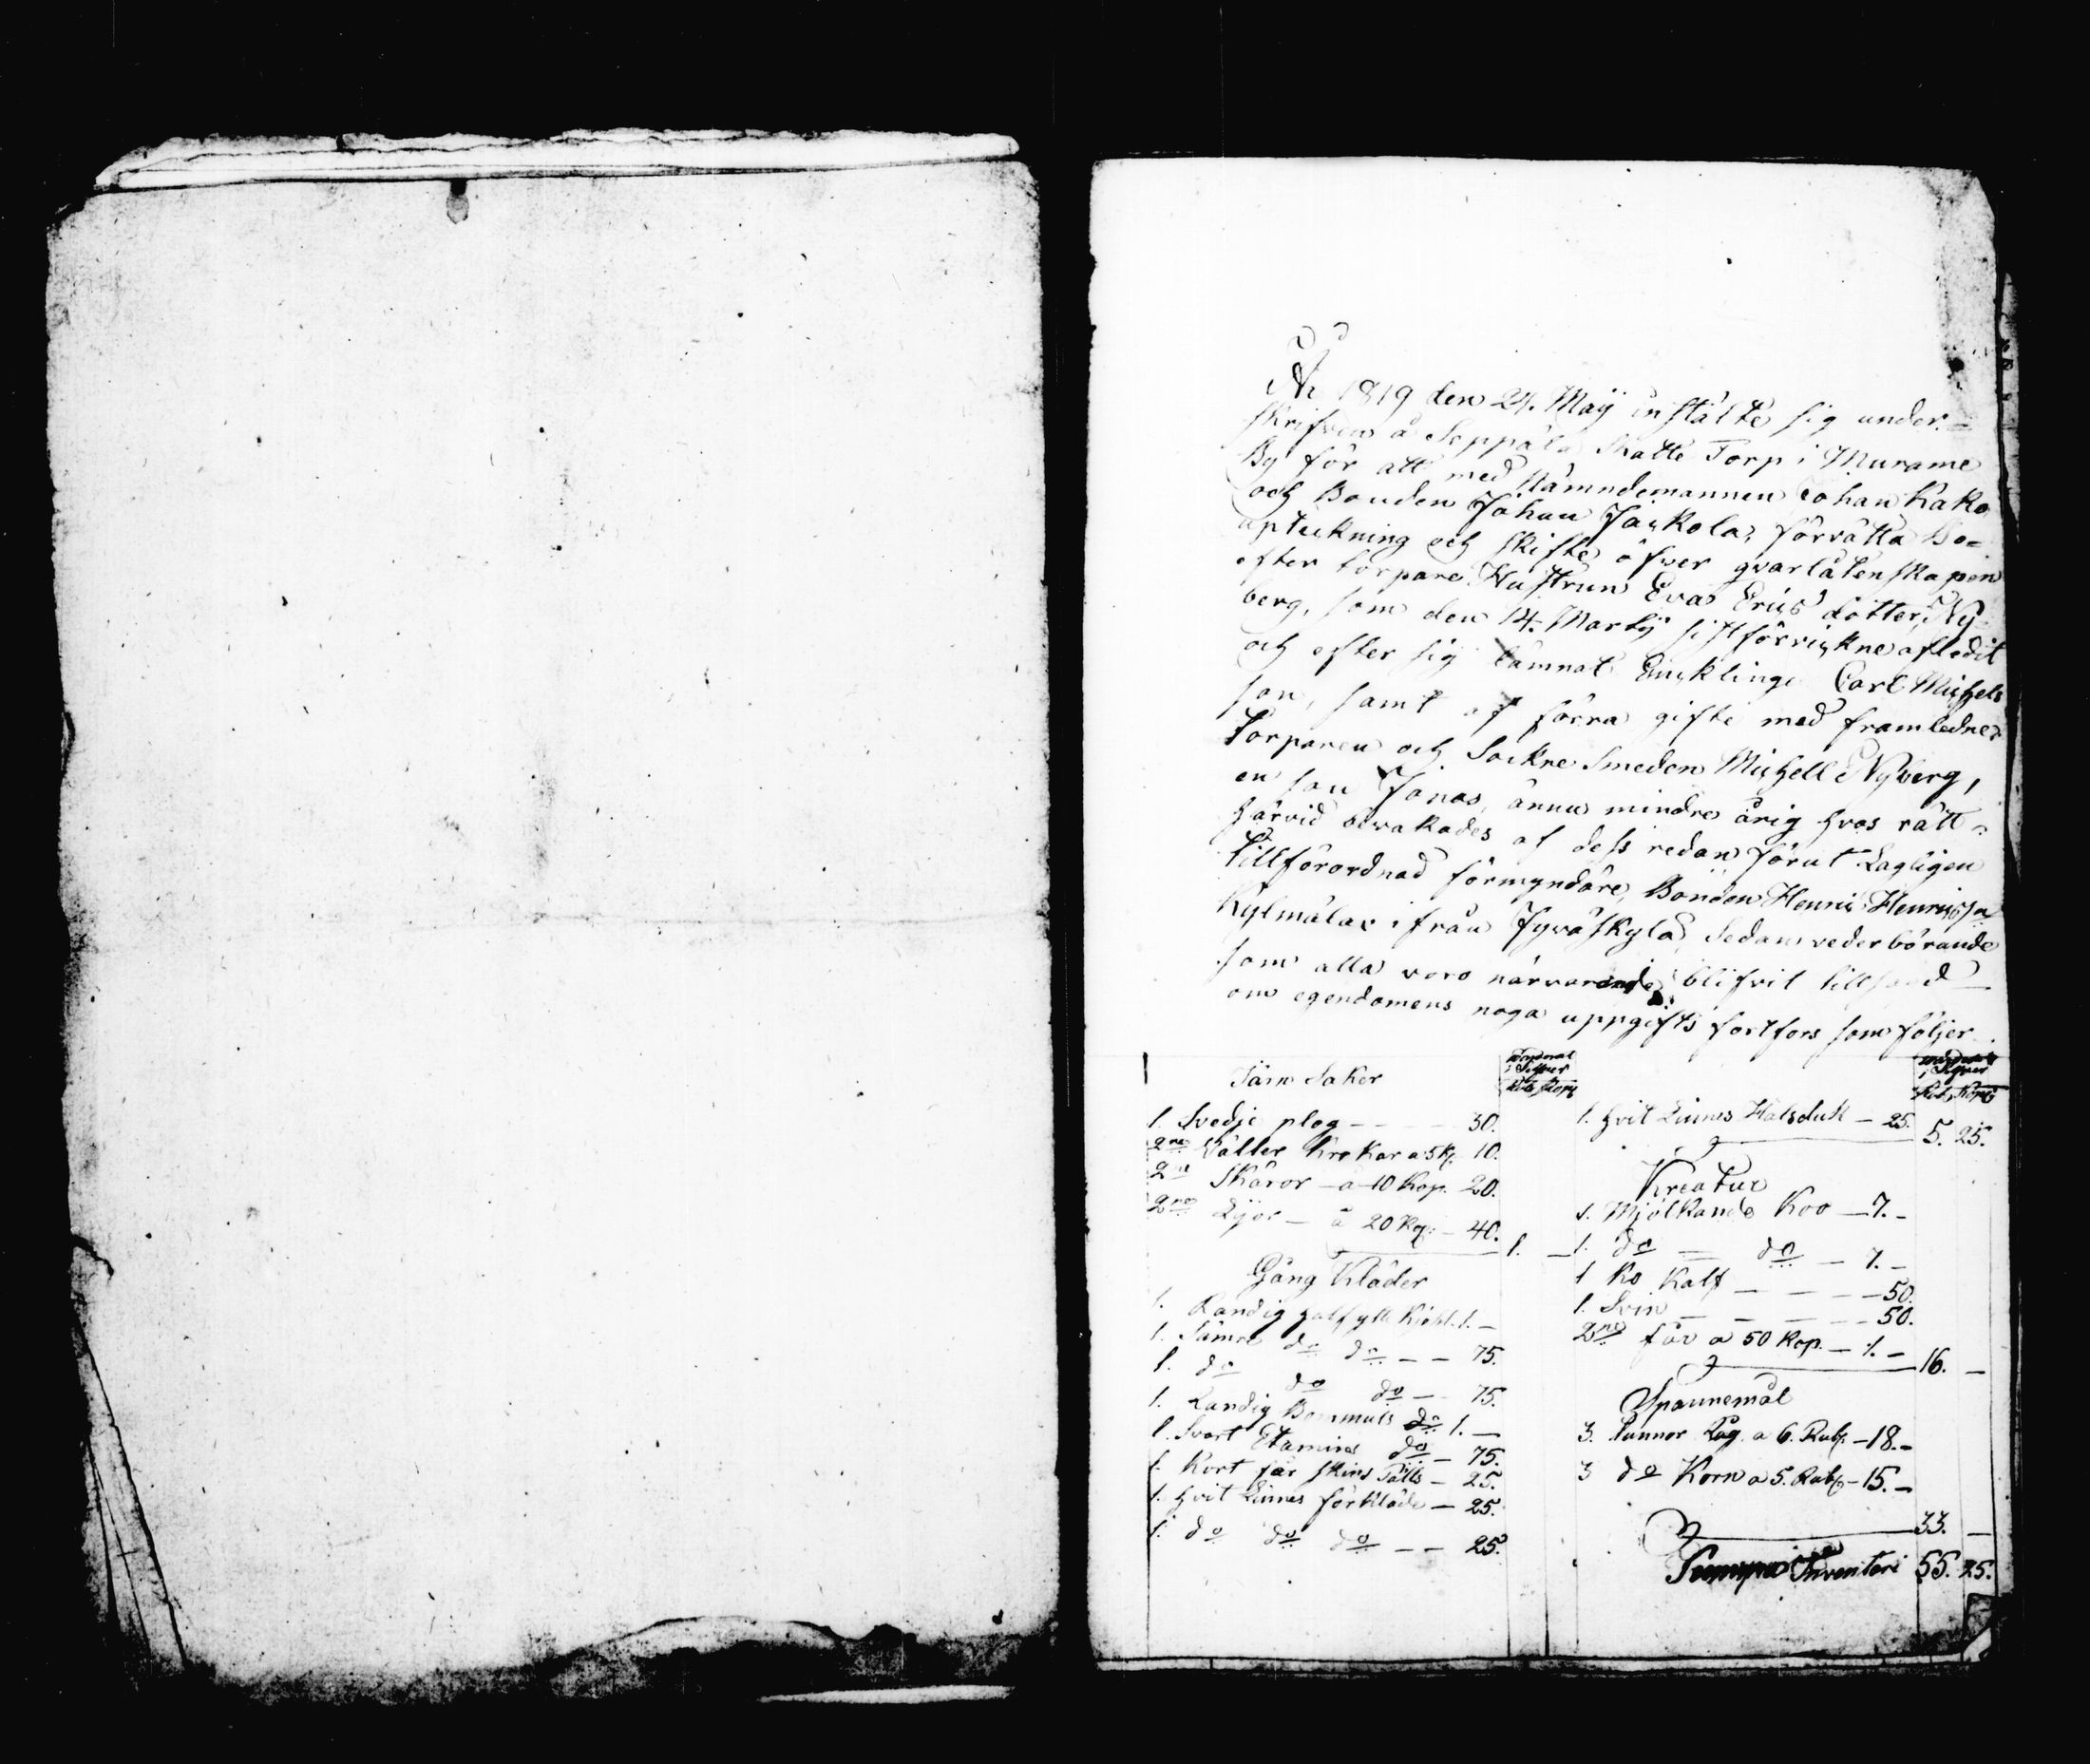 År 1819 den 24. Maÿ instälte sig under-
skrifven å Seppälä Skatte Torp i Murame
By för att med Nämndemannen Johan Kako
och Bonden Johan Jaskola, förrätta Bo-
upteckning och skifte öfver qvarlåtenskapen
efter torpare Hustrun Eva Erics dotter Ny-
berg, som den 14. Martÿ sistförvickne afledit
och efter sig lämnat Encklinge Carl Michels
son, samt af förra gifte med framledne
Torparen och Sockne Smeden Michell Nyberg,
en son Jonas, ännu mindre årig hvas rätt
härvid bevakades af dess redan förut Lagligen
Tillförordnad förmyndare, Bonden Henric Henricson
Kylmälax ifrån Jyväskylä, Sedan vederbörande
som alla voro närvarande, blifvit tillsagd
om egendomens noga uppgift fortfors som följer
Järn Saker
1. Svedje plog - - 30.
2ne Välter Krokar a 5 K. 10.
2ne Skäror - a 10 Kop. 20.
2ne Lÿor - à 20 Kop. - 40.
1. -
Gång Kläder
1. Randig halfylle Kjohl. 1. -
1. Sämre do do - - 75.
1. do do do - 75.
1. Randig Bommuls do 1. -
1. Svart Etamine do - 75.
1. Kort får skins Pälts - 25.
1. hvit Linnes förkläde - 25.
1. do do do - - 25.
Värderat
i Silfver
Rub. Kop.
1. hvit Linnes Halsduk - 25. 5. 25.
Kreatur
1. Mjölkande Koo - 7. -
1. do - do - 7. -
1 Ko Kalf - - - - 50.
1. Svin - - - - 50.
2ne får a 50 Kop. - 1. -
16. -
Spannemål
3. Tunnor Råg. a 6. Rub. - 18. -
3 do Korn a 5. Rub. - 15. -
33. -
Summa Inventari 55. 25.